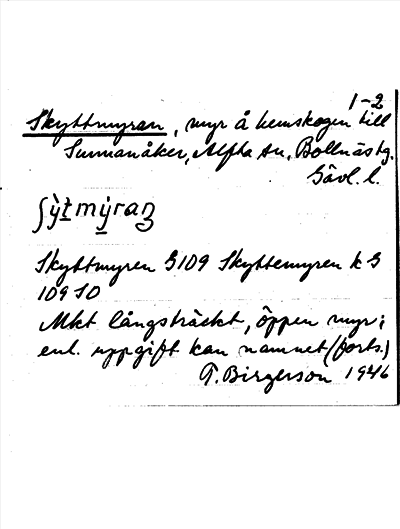 1-2
Skyttmyran, myr å hemskogen till
Sunnanåker, Alfta sn, Bollnäs tg.
Gävl. l.
ʃỳtmýraꞃ
Skyttmyren G109 Skyttemyren k G
109 SO
Mkt långsträckt, öppen myr;
enl. uppgift kan namnet (forts.)
T. Birgerson 1946